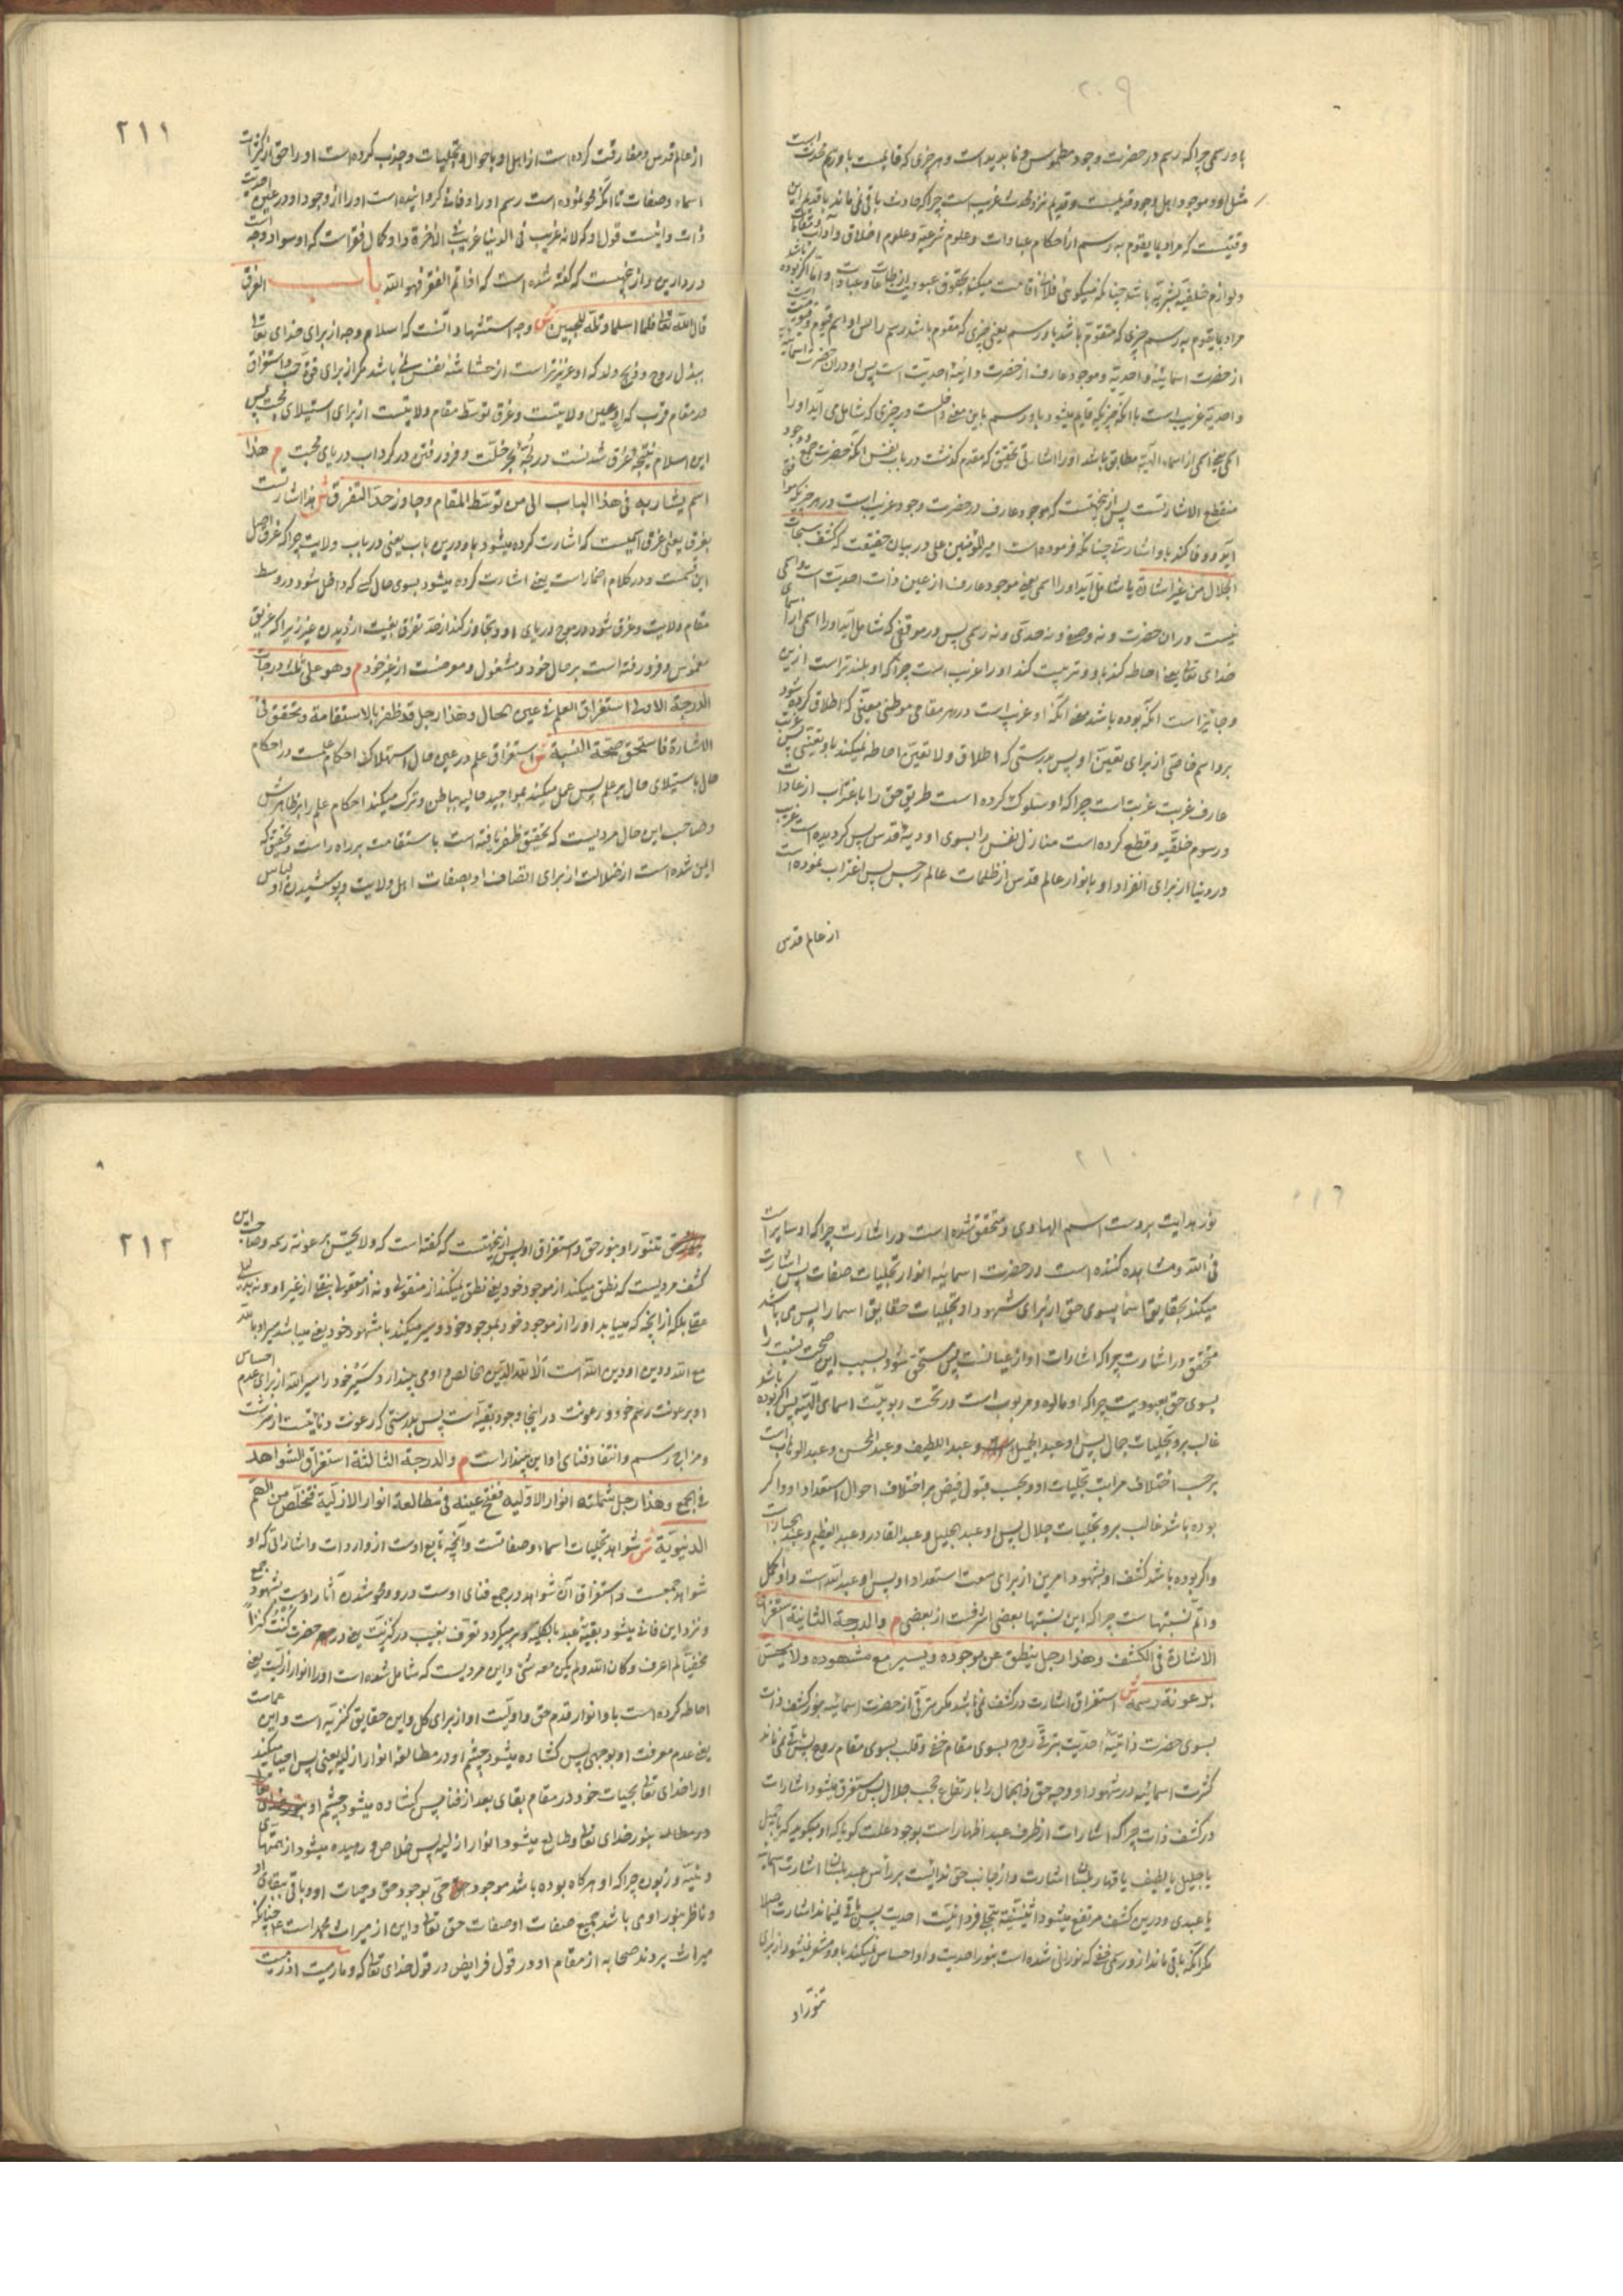 ۲۰۹
باو رسمی چراکه رسم در حضرت وجود مطموس و ناپدید است و هر چیزی که قایمست باو رسم محدث است
مثل او و موجود اهل وجود قدیمست و قدیم نزد محدث غریب است چراکه حادث باقی نمی ماند با قدیم این
وقتیست که مراد بما یقوم به رسم از احکام عبادات و علوم شرعیه و علوم اخلاق و آداب و مقامات
ولوازم خلقیه بشریه باشد چنانکه میگوئی فلان اقامت میکند بحقوق عبودیت از طاعات و عبادات و اما اگر بوده باشد
مراد بما یقوم به رسم چیزی که متقوم باشد باو رسم یعنی چیزی که مقوم باشد رسم را پس او اسم قیوم
از حضرت اسمائیه واحدیه و موجود عارف از حضرت ذاتیه احدیت است پس او در آن حضرت اسمائیه
واحدیه غریب است با آنکه چیزیکه قایم میشود باو رسم باین معنی داخلست در چیزی که شامل می آید او را
اسمی یعنی اسمی از اسماء الهیه مطابق باشد او را اشارتی تحقیق که مقدم گذشت در باب نفس آنکه حضرت جمع وجود
منقطع الاشارتست پس ازینجهتست که موجود عارف در حضرت وجود غریب است و در هر چیزیکه
آید و وفا کند باو اشارت چنانکه فرموده است امیرالمؤمنین علی در بیان حقیقت که کشف سبحات
الجلال من غیر اشارة یا شامل آید او را اسمی یعنی موجود عارف از عین ذات احدیت است و اسمی
نیست در ان حضرت و نه وصفی و نه حدی و نه رسمی پس در موقفی که شامل آید او را اسمی از اسمای
خدای تعالی یعنی احاطه کند باو و تربیت کند او را غریب است چراکه او بلند تر است ازین
و جایز است آنکه بوده باشد معنی آنکه او غریب است در هر مقامی موطنی معینی که اطلاق کرده شود
برو اسم خاصی از برای تعین او پس بدرستی که اطلاق و لا تعین احاطه نمیکند باو تعینی پس غربت
عارف غربت غربت است چراکه او سلوک کرده است طریق حق را باغتراب از عادات
و رسوم خلقیه و قطع کرده است منازل نفس را بسوی اودیه قدس پس گردیده است غریب
در دنیا از برای انفراد او بانوار عالم قدس از ظلمات عالم رجس پس اغتراب نموده است
از عالم قدس
۲۱۱
از عالم قدس و مفارقت کرده است از اهل او باحوال و تجلیات و جذب کرده است او را حق از کثرات
اسماء و صفات تا آنکه محو نموده است رسم او را و فانی گردانیده است او را از وجود او در عین احدیت
ذات و اینست قول او که لانه غریب فی الدنیا غریب فی الآخرة و او کمال فقر است که او سواد وجه است
در دارین و ازینجهتست که گفته شده است که اذا تم الفقر فهو الله باب الغرق
قال الله تعالی فلما اسلما و تله للجبین ش وجه استشهاد آنست که اسلام وجه از برای خدای تعالی
ببذل روح و ذبح ولد که او عزیز تر است از حشاشه نفس نمی باشد مگر از برای قوة حب و استغراق
در مقام قرب که او عین ولایتست و غرق توسط مقام ولایتست از برای استیلای محبت پس
این اسلام نتیجه غرق شدنست در لجه بحر خلت و فرو رفتن در گرداب دریای محبت م هذا
اسم یشار به فی هذا الباب الی من توسط المقام و جاوز حد التفرق ش هذا اشارتست
بغرق یعنی غرق اسمیست که اشارت کرده میشود باو درین باب یعنی در باب ولایت چراکه غرق اصل
این قسمت و در کلام اضمار است یعنی اشارت کرده میشود بسوی حال کسی که داخل شود در وسط
مقام ولایت و غرق شود در موج دریای او و تجاوز کند از حد تفرق بغیبت از دیدن غیر زیراکه غریق
مغموس و فرو رفته است بر حال خود و مشغول و معرضست از غیر خود م وهو علی ثلث درجات
الدرجة الاولی استغراق العلم فی عین الحال وهذا رجل قد ظفر بالاستقامة وتحقق فی
الاشارة فاستحق صحة النسبة ش استغراق علم در عین حال استهلاک احکام علمست در احکام
حال باستیلای حال بر علم پس عمل میکند بمواجید حالیه بباطن و ترک میکند احکام علم را بظاهرش
و صاحب این حال مردیست که بتحقیق ظفر یافته است باستقامت بر راه راست و بحق که
ایمن شده است از ضلالت از برای اتصاف او بصفات اهل ولایت و پوشیدن او لباس
۲۱۰
نور هدایت بر دست اسم الهادی و متحقق شده است در اشارت چراکه او سایر است
فی الله و مشاهده کننده است در حضرت اسمائیه انوار تجلیات صفات پس اشارت
میکند بحقایق اسما بسوی حق از برای شهود او تجلیات حقایق اسما را پس می باشد
متحقق در اشارت چراکه اشارات او از عیانست پس مستحق شود بسبب این صحت نسبت را
بسوی حق بعبودیت چراکه او مألوه و مربوب است در تحت ربوبیت اسمای الهیه پس اگر بوده باشد
غالب برو تجلیات جمال پس او عبد الجمیل و عبد اللطیف و عبد المحسن و عبد الوهاب است
بر حسب اختلاف مراتب تجلیات او و بحسب قبول فیض بر اختلاف احوال استعداد او و اگر
بوده باشد غالب برو تجلیات جلال پس او عبد الجلیل و عبد القادر و عبد العظیم و عبد الجبار است
و اگر بوده باشد کشف او بشهود امرین از برای سعت استعداد او پس او عبد الله است و او اکمل
و اتم نسبتهاست چراکه این نسبتها بعضی اشرفست از بعضی م والدرجة الثانیة استغراق
الاشارة فی الکشف وهذا رجل ینطق عن موجوده ویسیر مع مشهوده ولا یحس
برعونة رسمه ش استغراق اشارت در کشف نمی باشد مگر بترقی از حضرت اسمائیه بنور کشف ذات
بسوی حضرت ذاتیه احدیت بترقی روح بسوی مقام خفی و قلب بسوی مقام روح پس باقی نمی ماند
کثرت اسمائیه در شهود او وجه حق ذا الجمال را بارتفاع حجب جلال پس مستغرق میشود اشارات
در کشف ذات چراکه اشارات از طرف عبد اظهار است بوجود علت گویا که او میگوید که یا جمیل
یا جلیل یا لطیف یا قهار بلسان اشارت و از جانب حق ندائیست بر رأس عبد بلسان اشارت اسمائیه
یا عبدی و درین کشف مرتفع میشود اثنینیه بتجلی فردانیت احدیت پس باقی نمیماند اشارت اصلا
مگر آنکه باقی ماند از و رسمی خفی که نورانی شده است بنور احدیت و او احساس نمیکند باو و مشعر نمیشود از برای
تنور او
۲۱۲
تنور او بنور حق و استغراق او پس ازینجهتست که گفته است که ولا یحس برعونة رسمه و صاحب این
کشف مردیست که نطق میکند از موجود خود یعنی نطق میکند از منقوط و نه از معقول یعنی از غیر او و نه بتدبیر
عقل بلکه از آنچه که مییابد او را از موجود خود بموجود خود و سیر میکند با مشهود خود یعنی میباشد سیر او بالله
مع الله و دین او دین الله است الا لله الدین الخالص و او می پندارد سیر خود را سیر الله از برای عدم احساس
او برعونت رسم خود و رعونت در اینجا وجود بقیه است پس بدرستی که رعونت دنائتیست از سرشت
و مزاج رسم و انتفاء فنای او این پندار است م والدرجة الثالثة استغراق الشواهد
فی الجمع وهذا رجل شملته انوار الاولیه ففتح عینه فی مطالعة انوار الازلیة فتخلص من الهمم
الدنیویة ش شواهد تجلیات اسماء و صفاتست و آنچه تابع اوست از واردات و اشاراتی که او
شواهد جمعست و استغراق آن شواهد در جمع فنای اوست درو و محو شدن آثار اوست بشهود جمع
و نزد این فانی میشود بقیه عبد بالکلیه و بر میگردد تعرف بغیب در کنزیت یعنی در حضرت کنت کنزا
مخفیا لم اعرف و کان الله و لم یکن معه شیء و این مردیست که شامل شده است او را انوار ازلیت یعنی
احاطه کرده است باو انوار قدم حق و اولیت او از برای کل و این حقایق کنزیه است و این عماست
یعنی عدم معرفت او بوجهی پس گشاده میشود چشم او در مطالعه انوار ازلیه یعنی پس احیا میکند
او را خدای تعالی بحیات خود در مقام بقای بعد از فنا پس گشاده میشود چشم او
در مطالعه بنور خدای تعالی و طالع میشود انوار ازلیه پس خلاص و رهیده میشود از همتهای
دنیه و زبون چراکه او هر گاه بوده باشد موجود حی بوجود حق و حیات او و باقی ببقای او
و ناظر بنور او می باشد جمیع صفات او صفات حق تعالی و این از میراث محمد است چنانکه
میراث بردند صحابه از مقام او در قول فرایض در قول خدای تعالی که و ما رمیت اذ رمیت